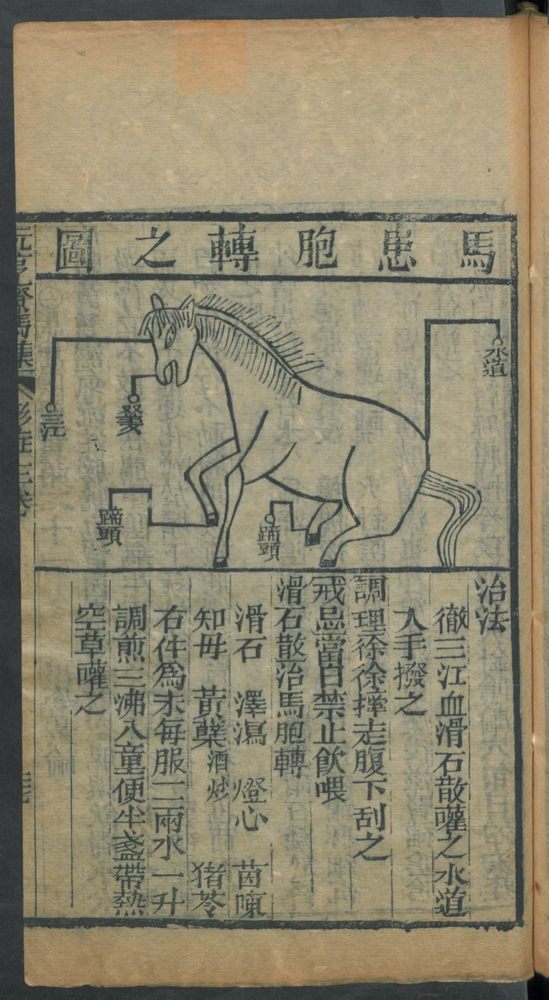 馬患胞轉之圖
水道
三江
蹄頭
蹄頭
治法
徹三江血滑石散嚾之水道
入手撥之
調理徐徐擡走腹下刮之
戒忌當日禁止飲喂
滑石散治馬胞轉
滑石 澤瀉 燈心 茵陳
知母 黃蘗酒炒 猪苓
右件爲末每服二兩水一升
調煎三沸入童便半盞帶熱
空草嚾之